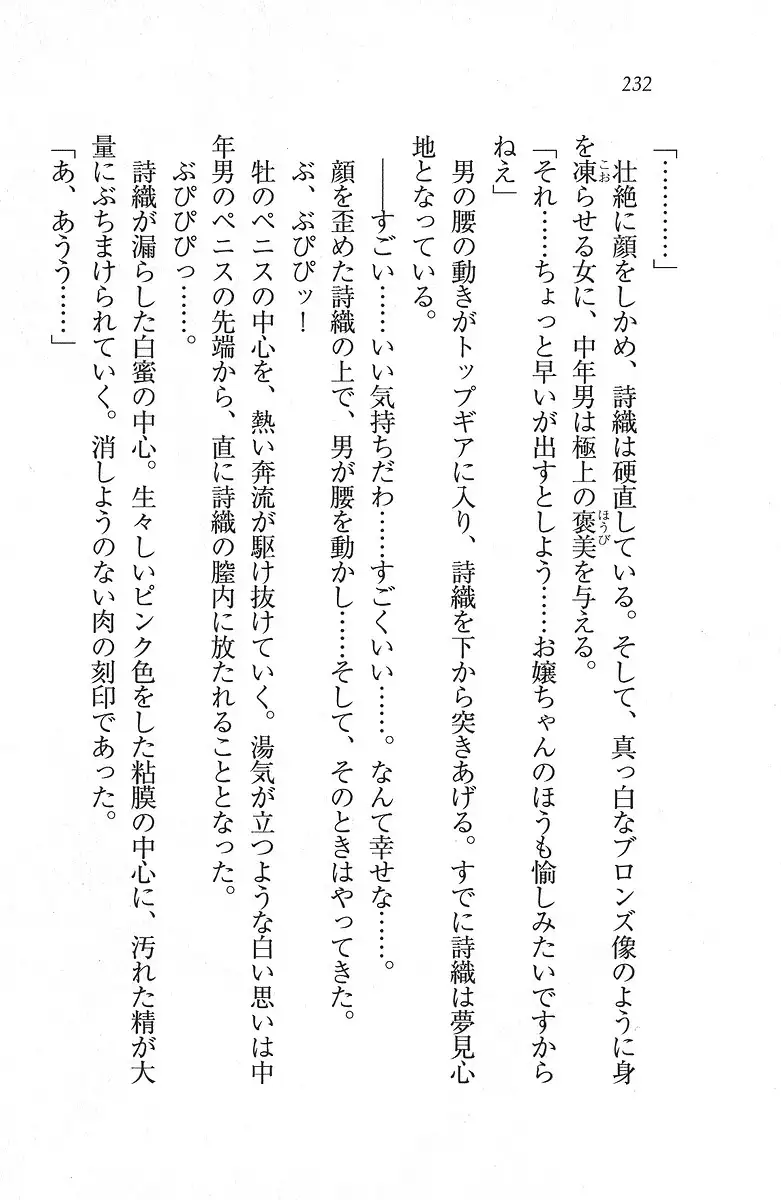 232
「…………」
壮絶に顔をしかめ、詩織は硬直している。そして、真っ白なブロンズ像のように身
を凍らせる女に、中年男は極上の褒美を与える。
「それ……ちょっと早いが出すとしよう……お嬢ちゃんのほうも愉しみたいですから
ねえ」
男の腰の動きがトップギアに入り、詩織を下から突きあげる。すでに詩織は夢見心
地となっている。
――すごい……いい気持ちだわ……すごくいい……。なんて幸せな……。
顔を歪めた詩織の上で、男が腰を動かし……そして、そのときはやってきた。
ぶ、ぶぴぴッ！
牡のペニスの中心を、熱い奔流が駆け抜けていく。湯気が立つような白い思いは中
年男のペニスの先端から、直に詩織の膣内に放たれることとなった。
ぶぴぴぴっ……。
詩織が漏らした白蜜の中心。生々しいピンク色をした粘膜の中心に、汚れた精が大
量にぶちまけられていく。消しようのない肉の刻印であった。
「あ、あうう……」